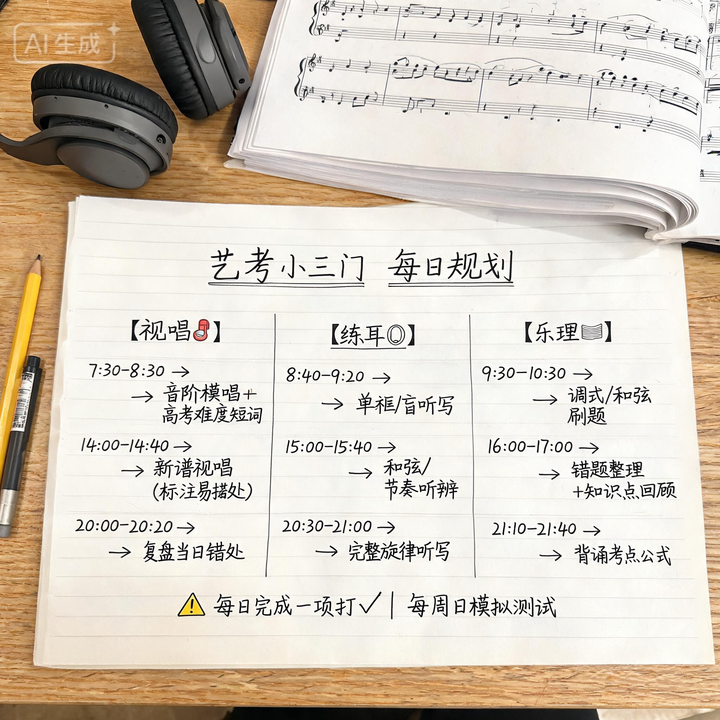 AI生成
艺考小三门 每日规划
【视唱】
7:30-8:30 →
→ 音阶模唱+
高考难度短词
14:00-14:40 →
→ 新谱视唱
(标注易搓处)
20:00-20:20 →
→ 复盘当日错处
【练耳】
8:40-9:20 →
→ 单框/盲听写
15:00-15:40 →
→ 和弦/
节奏听辨
20:30-21:00 →
→ 完整旋律听写
【乐理】
9:30-10:30 →
→ 调式/和弦
刷题
16:00-17:00 →
→ 错题整理
+知识点回顾
21:10-21:40 →
→ 背诵考点公式
⚠ 每日完成一项打✓ | 每周日模拟测试